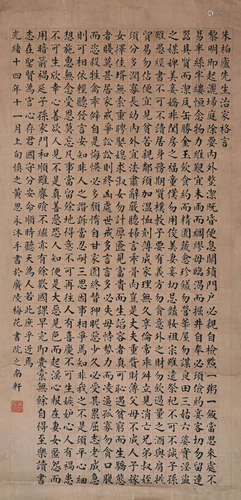 朱柏廬先生治家格言
黎明即起灑掃庭除要內外整潔既昏便息關鎖門戶必親自檢點一粥一飯當思來處不
易半絲半縷恒念物力維艱宜未雨而綢繆毋臨渴而掘井自奉必須儉約宴客切勿留連
器具質而潔瓦缶勝金玉飲食約而精園蔬愈珍饈勿營華屋勿謀良田三姑六婆實淫盜
之媒婢美妾嬌非閨房之福童僕勿用俊美妻妾切忌豔粧祖宗雖遠祭祀不可不誠子孫
雖愚經書不可不讀居身務期質樸教子要有義方勿貪意外之財勿飲過量之酒與肩挑
貿易勿佔便宜見貧苦親鄰須加溫恤刻薄成家理無久享倫常乖舛立見消亡兄弟叔姪
須分多潤寡長幼內外宜法肅辭嚴聽婦言乖骨肉豈是丈夫重貲財薄父母不成人子嫁
女擇佳壻毋索重聘娶媳求淑女勿計厚匳見富貴而生諂容者最可恥遇貧窮而作驕態
者賤莫甚居家戒爭訟訟則終凶處世戒多言言多必失勿恃勢力而凌逼孤寡毋貪口腹
而恣殺牲禽乖僻自是悔誤必多頹惰自甘家道難成狎暱惡少久必受其累屈志老成急
則可相依輕聽發言安知非人之譖愬當忍耐三思因事相爭焉知非我之不是須平心暗想
施惠無念受恩莫忘凡事當留餘地得意不宜再往人有喜慶不可生妒嫉心人有禍患
不可生喜幸心善欲人見不是真善惡恐人知便是大惡見色而起淫心報在妻女匿怨而
用暗箭禍延子孫家門和順雖饔飧不繼亦有餘歡國課早完即囊橐無餘自得至樂讀書
志在聖賢為官心存君國守分安命順時聽天為人若此庶乎近焉
光緒十四年十一月上旬慎之黃思永手書於廣陵梅花書院之南軒